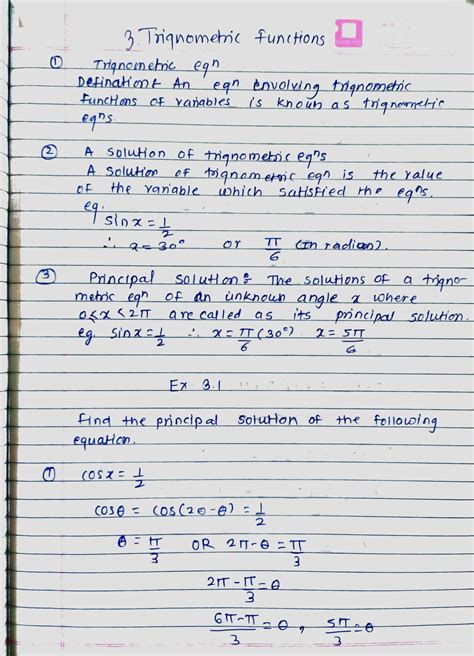 3. Trignometric functions
① Trignometric eqⁿ
Defination: An eqⁿ envolving trignometric
functions of variables is known as trignometric
eqⁿs.
② A solution of trignometric eqⁿs
A solution of trignometric eqⁿ is the value
of the variable which satisfied the eqⁿs.
eg.
sin x = 1/2
∴ x = 30° or π/6 (in radian).
③ Principal solution: The solutions of a trigno-
metric eqⁿ of an unknown angle x where
0 ≤ x < 2π are called as its principal solution.
eg. sin x = 1/2 ∴ x = π/6 (30°) x = 5π/6
Ex 3.1
find the principal solution of the following
equation.
① cos x = 1/2
cos θ = cos (2π - θ) = 1/2
θ = π/3 OR 2π - θ = π/3
2π - π/3 = θ
6π - π/3 = θ , 5π/3 = θ